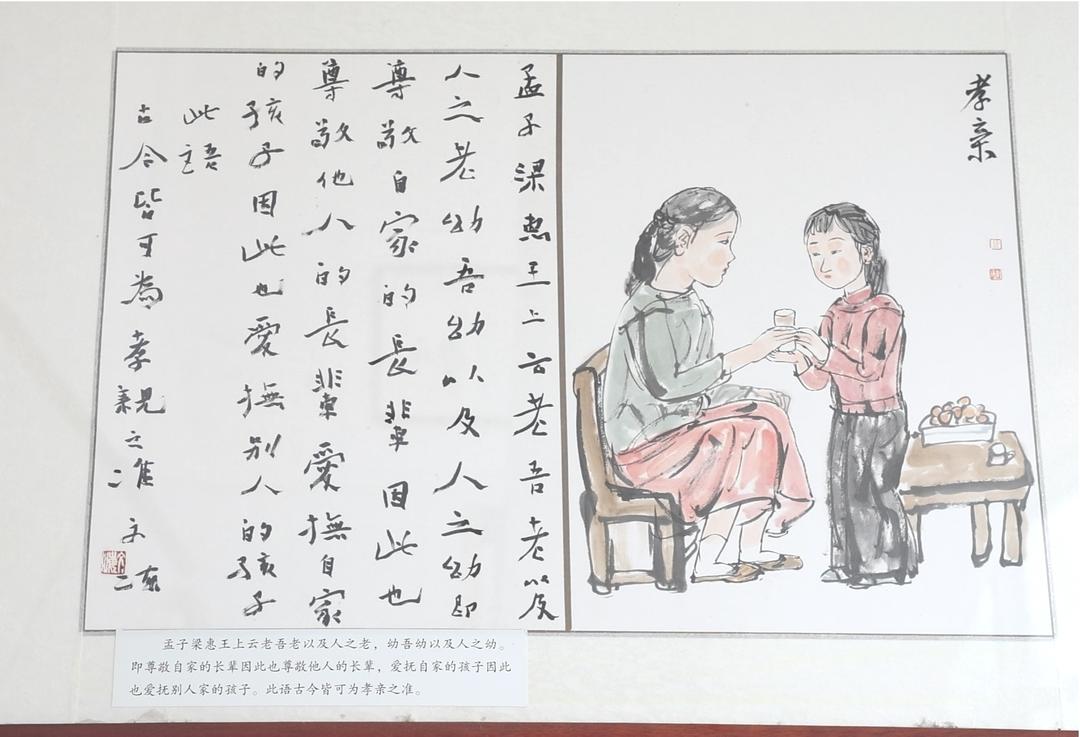 孝亲
孟子梁惠王上云老吾老以及
人之老幼吾幼以及人之幼即
尊敬自家的長輩因此也
尊敬他人的長輩愛撫自家
的孩子因此也愛撫别人的孩子
此語
古今皆可為孝親之准
孟子梁惠王上云老吾老以及人之老，幼吾幼以及人之幼。
即尊敬自家的长辈因此也尊敬他人的长辈，爱抚自家的孩子因此
也爱抚别人家的孩子。此语古今皆可为孝亲之准。